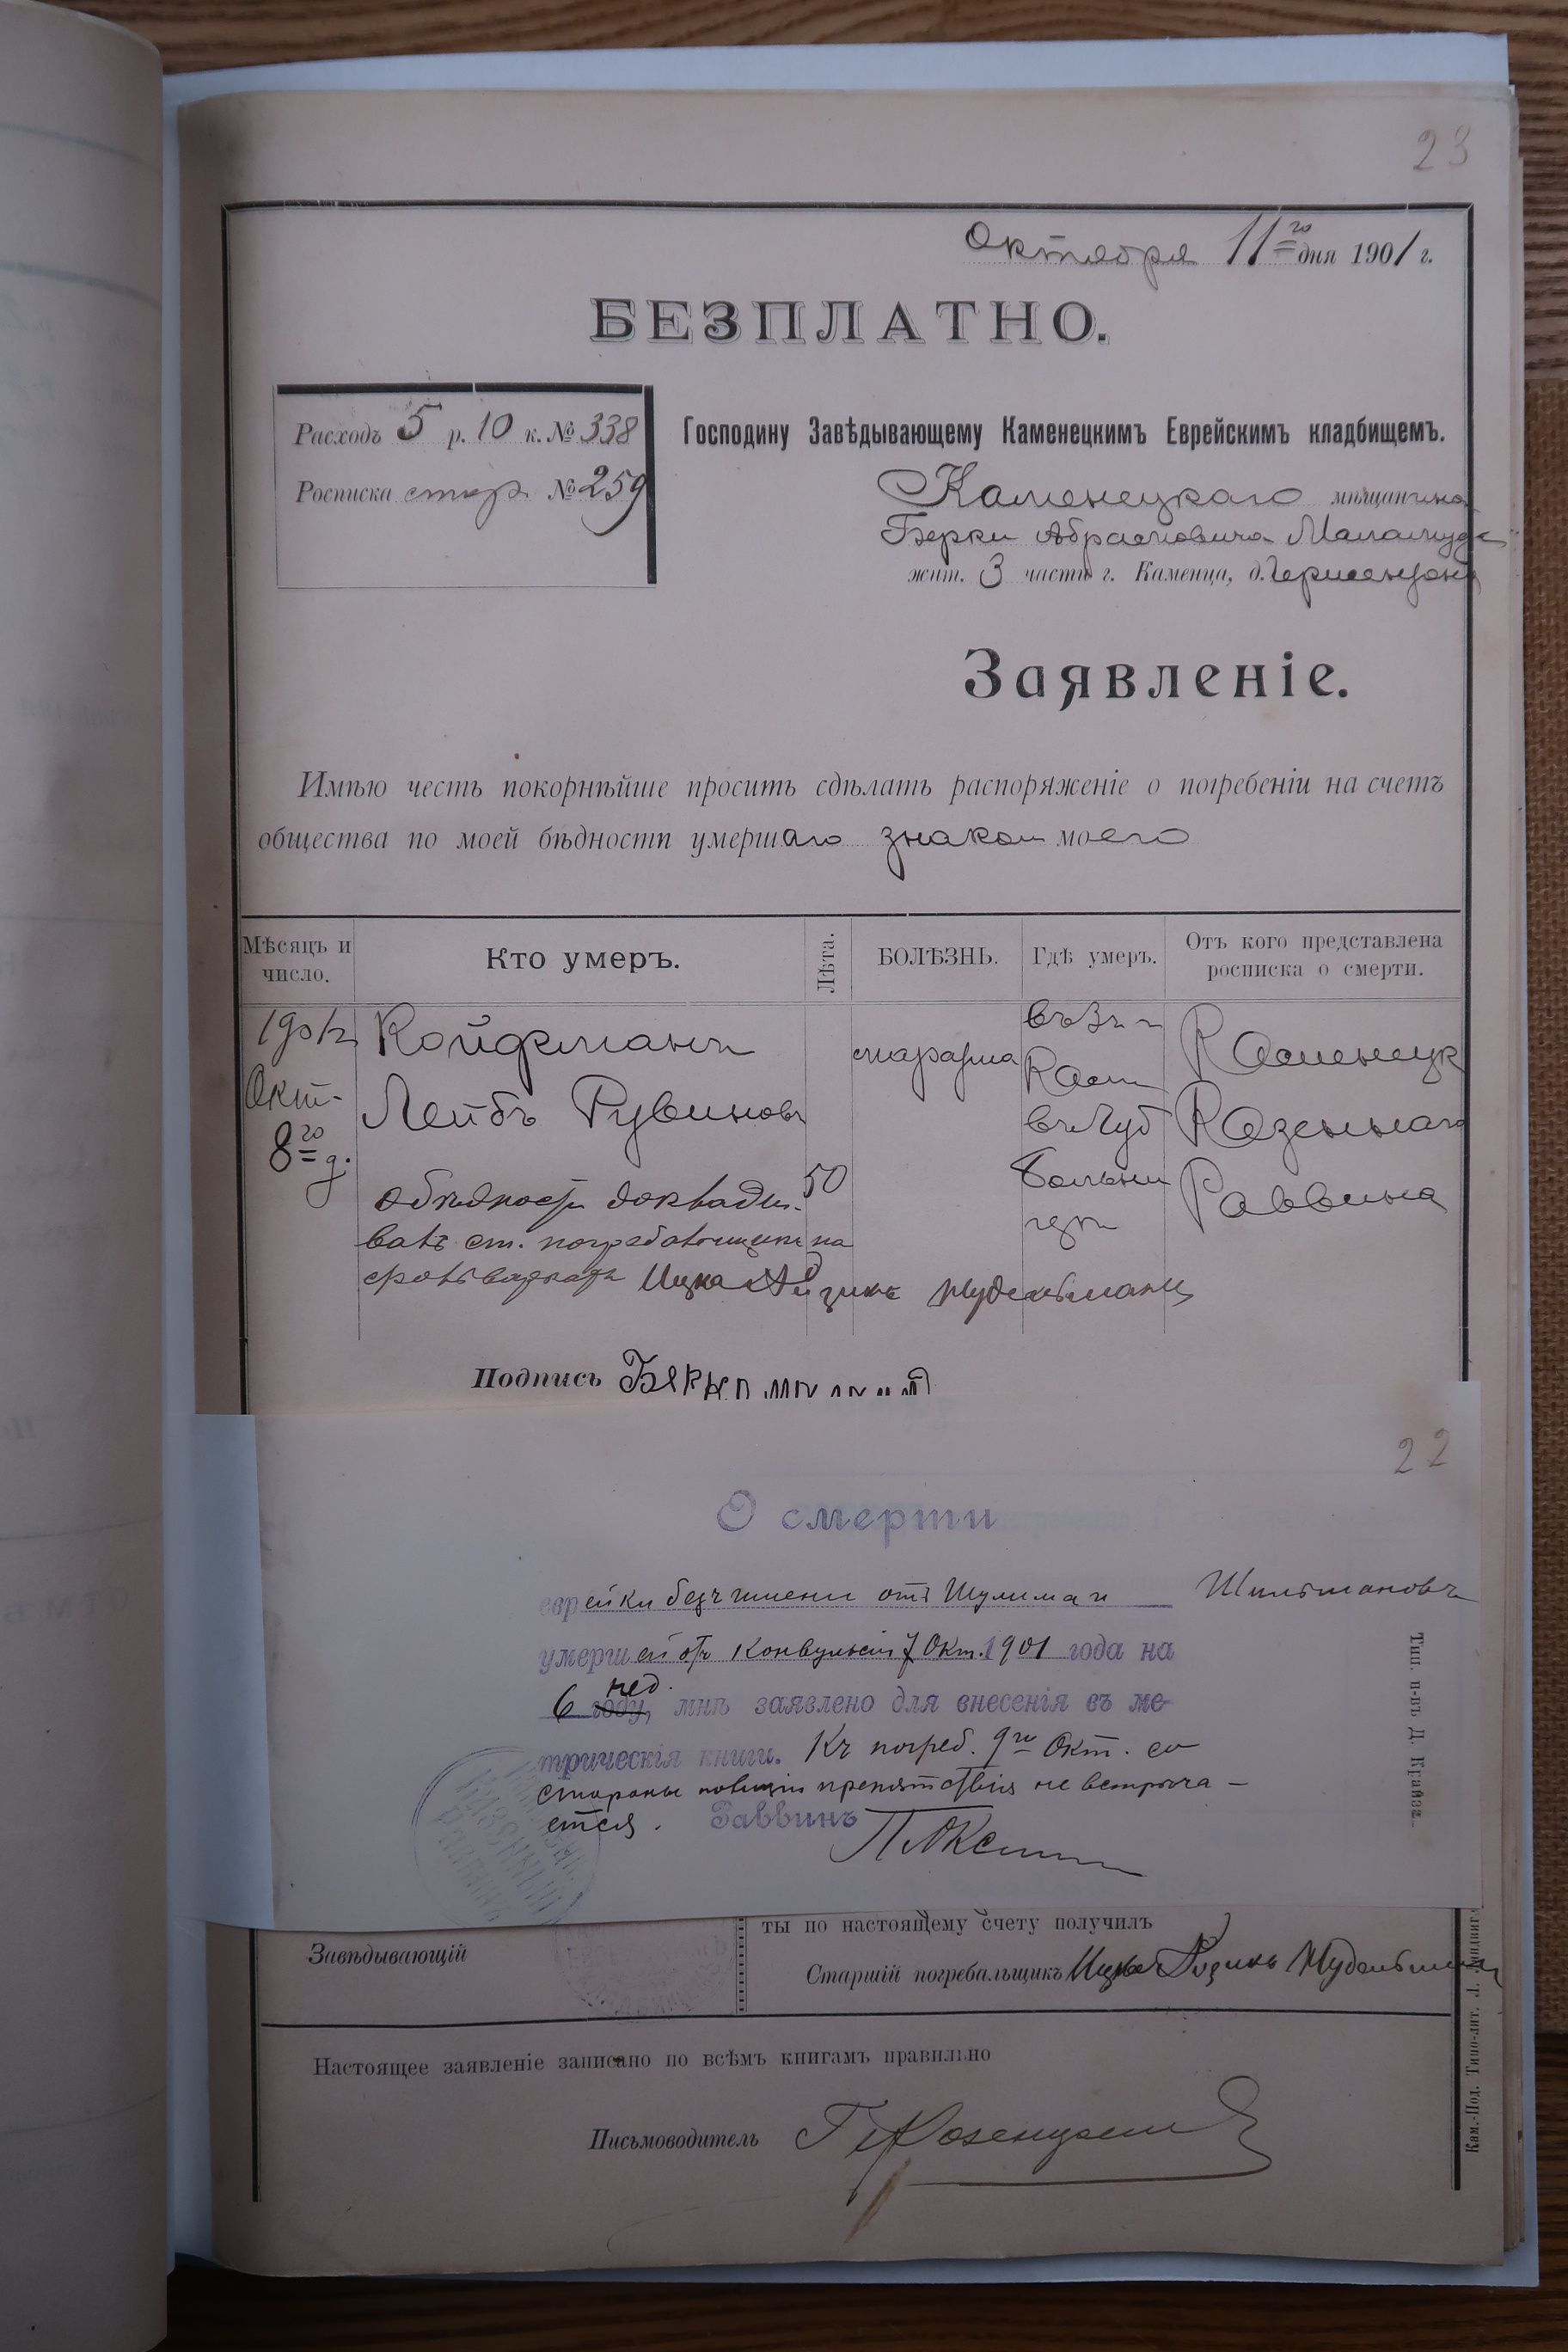 23
Октября 11го дня 1901 г.
БЕЗПЛАТНО.
Расходъ 5 р. 10 к. № 338
Росписка стар. № 259
Господину Завѣдывающему Каменецкимъ Еврейскимъ кладбищемъ.
Каменецкаго мѣщанина
Берки Абрамовича Маламуда
жит. 3 части г. Каменца, д. Гершензона
Заявленіе.
Имѣю честь покорнѣйше просить сдѣлать распоряженіе о погребеніи на счетъ
общества по моей бѣдности умершаго знаком моего
Мѣсяцъ и число.
Кто умеръ.
Лѣта.
БОЛѢЗНЬ.
Гдѣ умеръ.
Отъ кого представлена росписка о смерти.
1901г.
Окт.
8го д.
Койфманъ
Лейбъ Рувиновъ
50
въ
Кам
въ Губ
больни
цѣ
Каменецк
Казеннаго
Раввина
о бѣдности докладываетъ ст. погребальщикъ
Ицко Айзикъ Нудельманъ
Подпись Берко
22
О смерти
еврейки безъ имени отъ Шулима и Шильмановъ
умершей отъ конвульсій 7 Окт. 1901 года на
6 нед. году, мнѣ заявлено для внесенія въ ме-
трическія книги. Къ погреб. 9го Окт. со
стороны полиціи препятствія не встрѣча-
ется. Раввинъ
Тип. н-въ Д. Крайзъ.
КАЗЕННЫЙ
РАВВИНЪ
ты по настоящему счету получилъ
Завѣдывающій
Старшій погребальщикъ Ицко Айзикъ Нудельманъ
Настоящее заявленіе записано по всѣмъ книгамъ правильно
Письмоводитель
Кам.-Под. Типо-лит. Л.